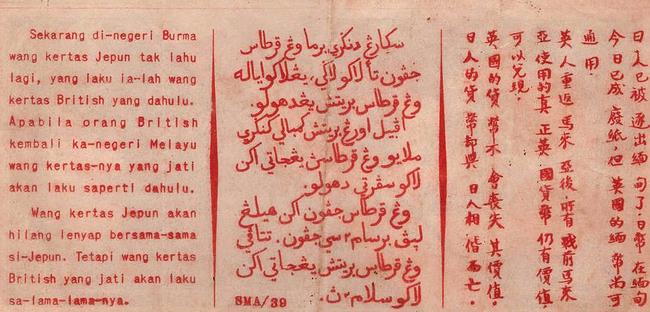 Sekarang di-negeri Burma
wang kertas Jepun tak lahu
lagi, yang laku ia-lah wang
kertas British yang dahulu.
Apabila orang British
kembali ka-negeri Melayu
wang kertas-nya yang jati
akan laku saperti dahulu.
Wang kertas Jepun akan
hilang lenyap bersama-sama
si-Jepun. Tetapi wang kertas
British yang jati akan laku
sa-lama-lama-nya.
سکارڠ دنݢري برما وڠ قرطاس
جڤون تا لاکو لاݢي، يڠ لاکو اياله
وڠ قرطاس بريتش يڠ دهولو.
اڤبيل اورڠ بريتش کمبالي کنݢري
ملايو وڠ قرطاسڽ يڠ جاتي اکن
لاکو سڤرتي دهولو.
وڠ قرطاس جڤون اکن هيلڠ
لپڤ برسام٢ سي جڤون. تتاڤي
وڠ قرطاس بريتش يڠ جاتي اکن
لاکو سلام٢ڽ.
SMA/39
日人已被逐出緬甸了,日幣在緬甸
今日已成廢紙,但英國的緬幣尚可
通用.
英人重返馬來亞後,所有戰前馬來
亞使用的真正英國貨幣,仍有價值,
可以兌現.
英國的貨幣不會喪失其價值,
日人的貨幣卻與日人相偕而亡.